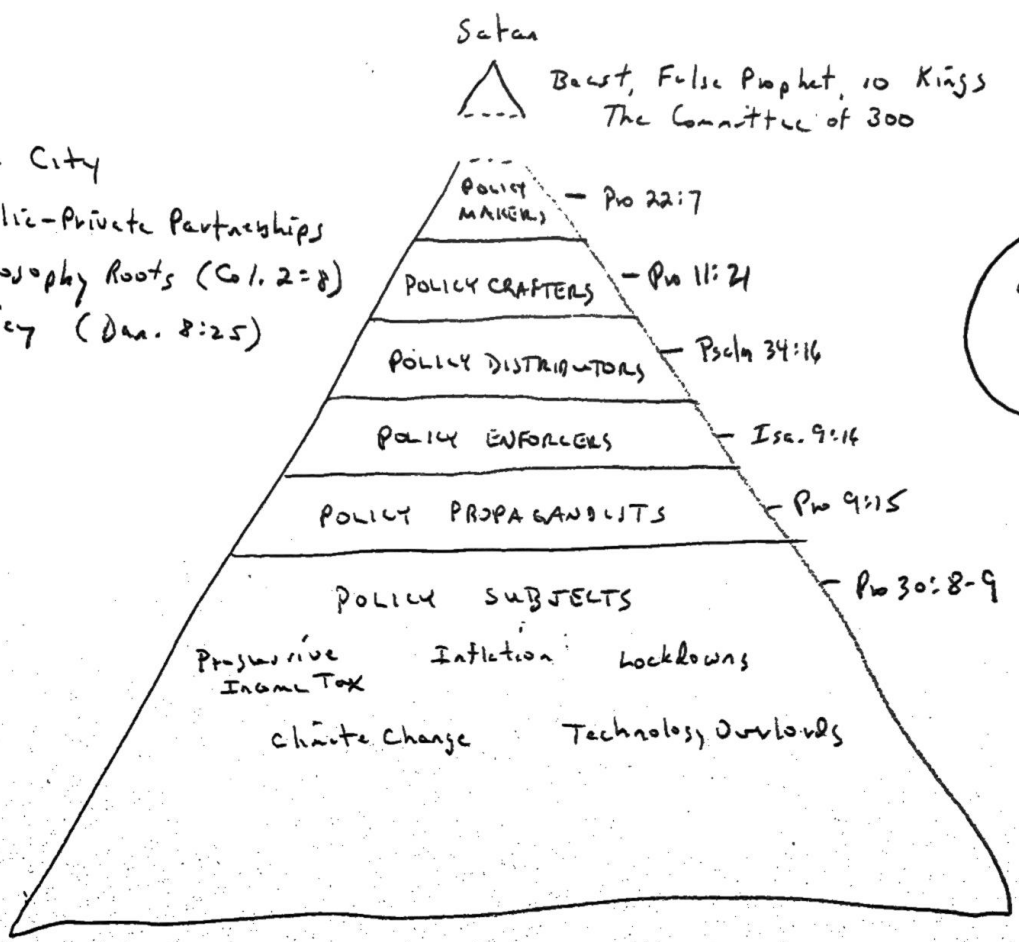 Satan
Beast, False Prophet, 10 Kings
The Committee of 300
City
lic-Private Partnerships
osophy Roots (Col. 2:8)
cy (Dan. 8:25)
POLICY
MAKERS
- Pro 22:7
POLICY CRAFTERS
- Pro 11:21
POLICY DISTRIBUTORS
- Psalm 34:16
POLICY ENFORCERS
- Isa. 9:16
POLICY PROPAGANDISTS
- Pro 9:15
POLICY SUBJECTS
- Pro 30:8-9
Progressive
Income Tax
Inflation
Lockdowns
Climate Change
Technology Overlords